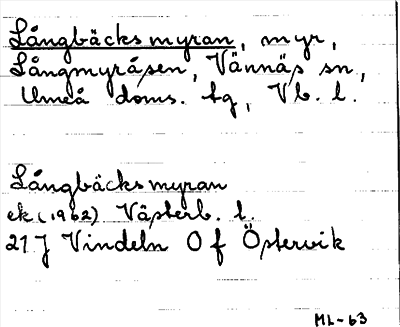 Långbäcksmyran, myr,
Långmyråsen, Vännäs sn,
Umeå doms. tg, Vb. l.
Långbäcksmyran
ek. (1962) Västerb. l.
21 J Vindeln O f Östervik
ML-63